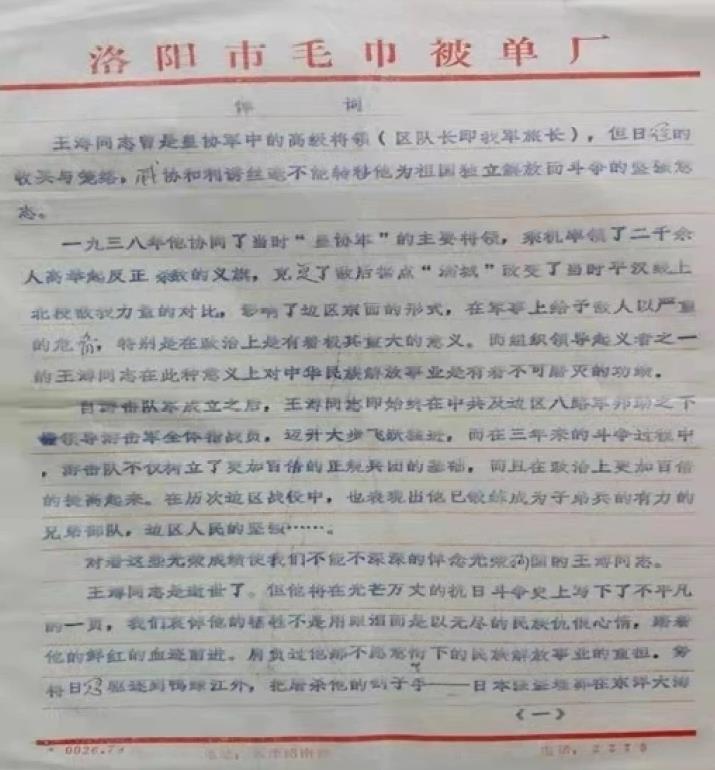 洛阳市毛巾被单厂
悼 词
王溥同志曾是皇协军中的高级将领（区队长即我军旅长），但日寇的
收买与笼络，威协和利诱丝毫不能转移他为祖国独立解放而斗争的坚强意
志。
一九三八年他协同了当时“皇协军”的主要将领，乘机率领了二千余
人高举起反正杀敌的义旗，克复了敌后据点“满城”改变了当时平汉线上
北段敌我力量的对比，影响了边区东面的形式，在军事上给予敌人以严重
的危胁，特别是在政治上是有着极其重大的意义。而组织领导起义者之一
的王溥同志在此种意义上对中华民族解放事业是有着不可磨灭的功绩。
自游击队军成立之后，王溥同志即始终在中共及边区八路军帮助之下
领导游击军全体指战员，迈开大步飞跃猛进，而在三年来的斗争过程中
，游击队不仅树立了更加百倍的正规兵团的基础，而且在政治上更加百倍
的提高起来。在历次边区战役中，也表现出他已锻练成为子弟兵的有力的
兄弟部队，边区人民的坚强……。
对着这些光荣成绩使我们不能不深深的怀念光荣殉国的王溥同志。
王溥同志是逝世了。但他将在光芒万丈的抗日斗争史上写下了不平凡
的一页，我们哀悼他的牺牲不是用眼泪而是以无尽的民族仇恨心情，踏着
他的鲜红的血迹前进。肩负过他那不愿放下的民族解放事业的重担，务
将日寇驱逐到鸭绿江外，把屠杀他的刽子手——日本强盗埋葬在东洋大海
（一）
0026.7
电话：2270